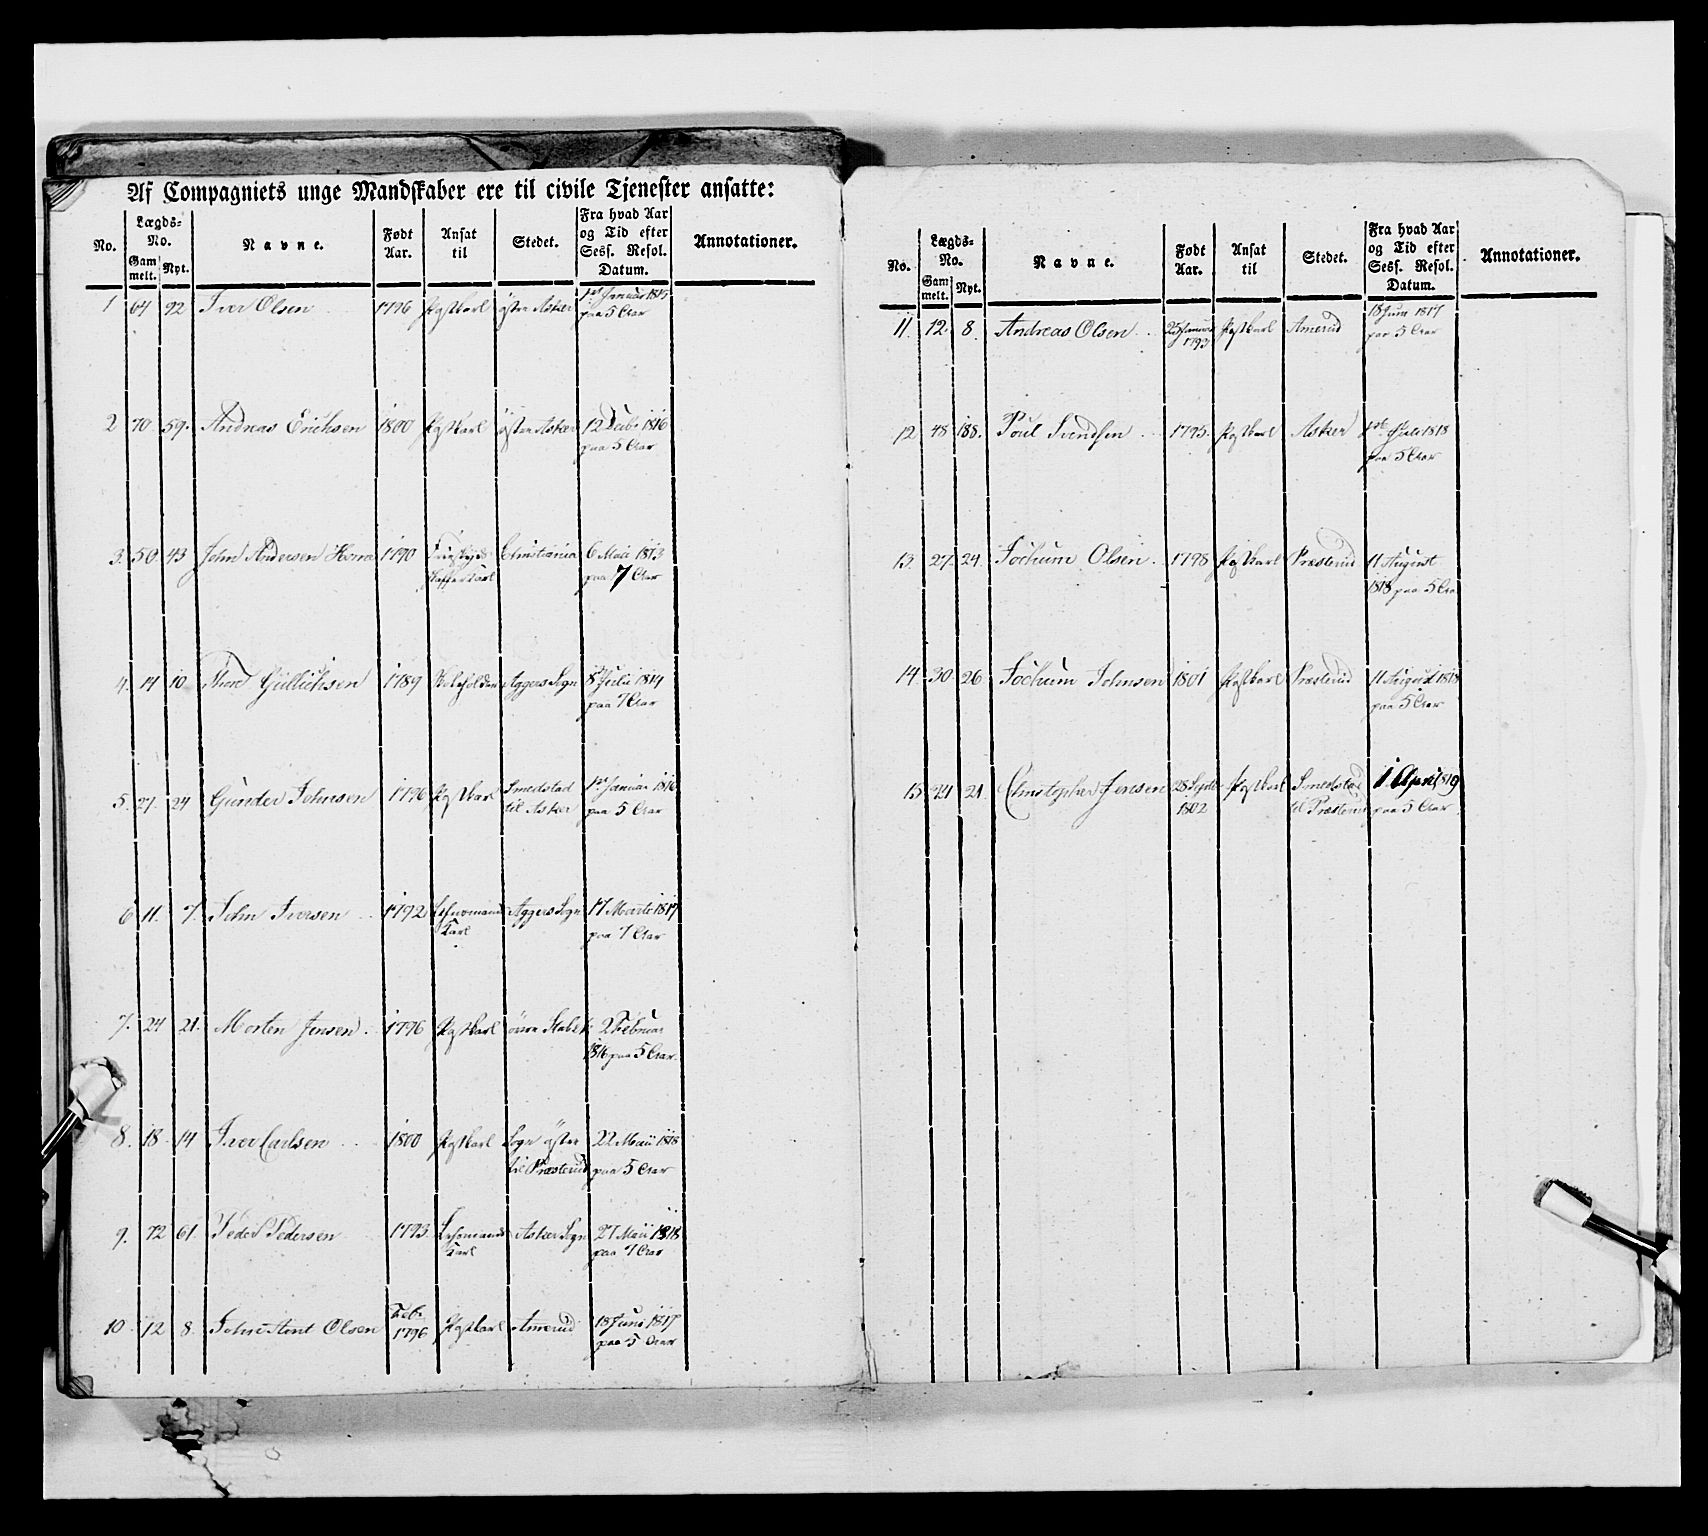 Af Compagniets unge Mandskaber ere til civile Tjenester ansatte:
No. Lægds-No. Gammelt. Nyt. Navne. Født Aar. Ansat til Stedet. Fra hvad Aar og Tid efter Sess. Resol. Datum. Annotationer.
1 64 92 Iver Olsen 1796 Postkarl östre Asker 1ste Januar 1815
paa 5 Aar
2 70 59. Andreas Erichsen 1800 Postkarl östre Asker 12 Decbr 1816
paa 5 Aar
3. 50 43 John Andersen 1790 Christiania 6 Maii 1813
paa 7 Aar
4. 14 10 Thore Gullichsen 1789 Aggers Sogn 8 Julii 1814
paa 7 Aar
5. 27. 24 Gunder Johnsen 1796 Postkarl Smedstad 1ste Januar 1816
til Asker paa 5 Aar
6 11. 7. John Iversen 1792 Lehnsmands Aggers Sogn 17 Marts 1817
Karl paa 7 Aar
7. 24 21. Morten Jensen. 1796 Postkarl 2 Februar
1816 paa 5 Aar.
8. 18 14 Iver Carlsen 1800 Postkarl Sogn östre 22 Maii 1818
til Præsterud paa 5 Aar
9. 72 61. Peder Pedersen 1793. Lehnsmands Asker Sogn 27 Maii 1818
Karl paa 7 Aar
10 12 8. Olsen Feb. 1796 Postkarl Amerud 18 Juni 1817
paa 5 Aar
No. Lægds-No. Gammelt. Nyt. Navne. Født Aar. Ansat til Stedet. Fra hvad Aar og Tid efter Sess. Resol. Datum. Annotationer.
11. 12. 8. Andreas Olsen 25 Januar 1793 Postkarl Amerud 18 Juni 1817
paa 5 Aar
12. 48 188. Poul Svendsen 1795. Postkarl Asker 1ste Juli 1818
paa 5 Aar
13. 27. 24. Jochum Olsen. 1798 Postkarl Præsterud 11 August
1818 paa 5 Aar
14. 30 26 Jochum Johnsen 1801 Postkarl Præsterud 11 August 1818
paa 5 Aar
15 24 21. Christopher Jensen 28 Septbr 1802 Postkarl Smedstad 1 April 1819
til Præsterud paa 5 Aar